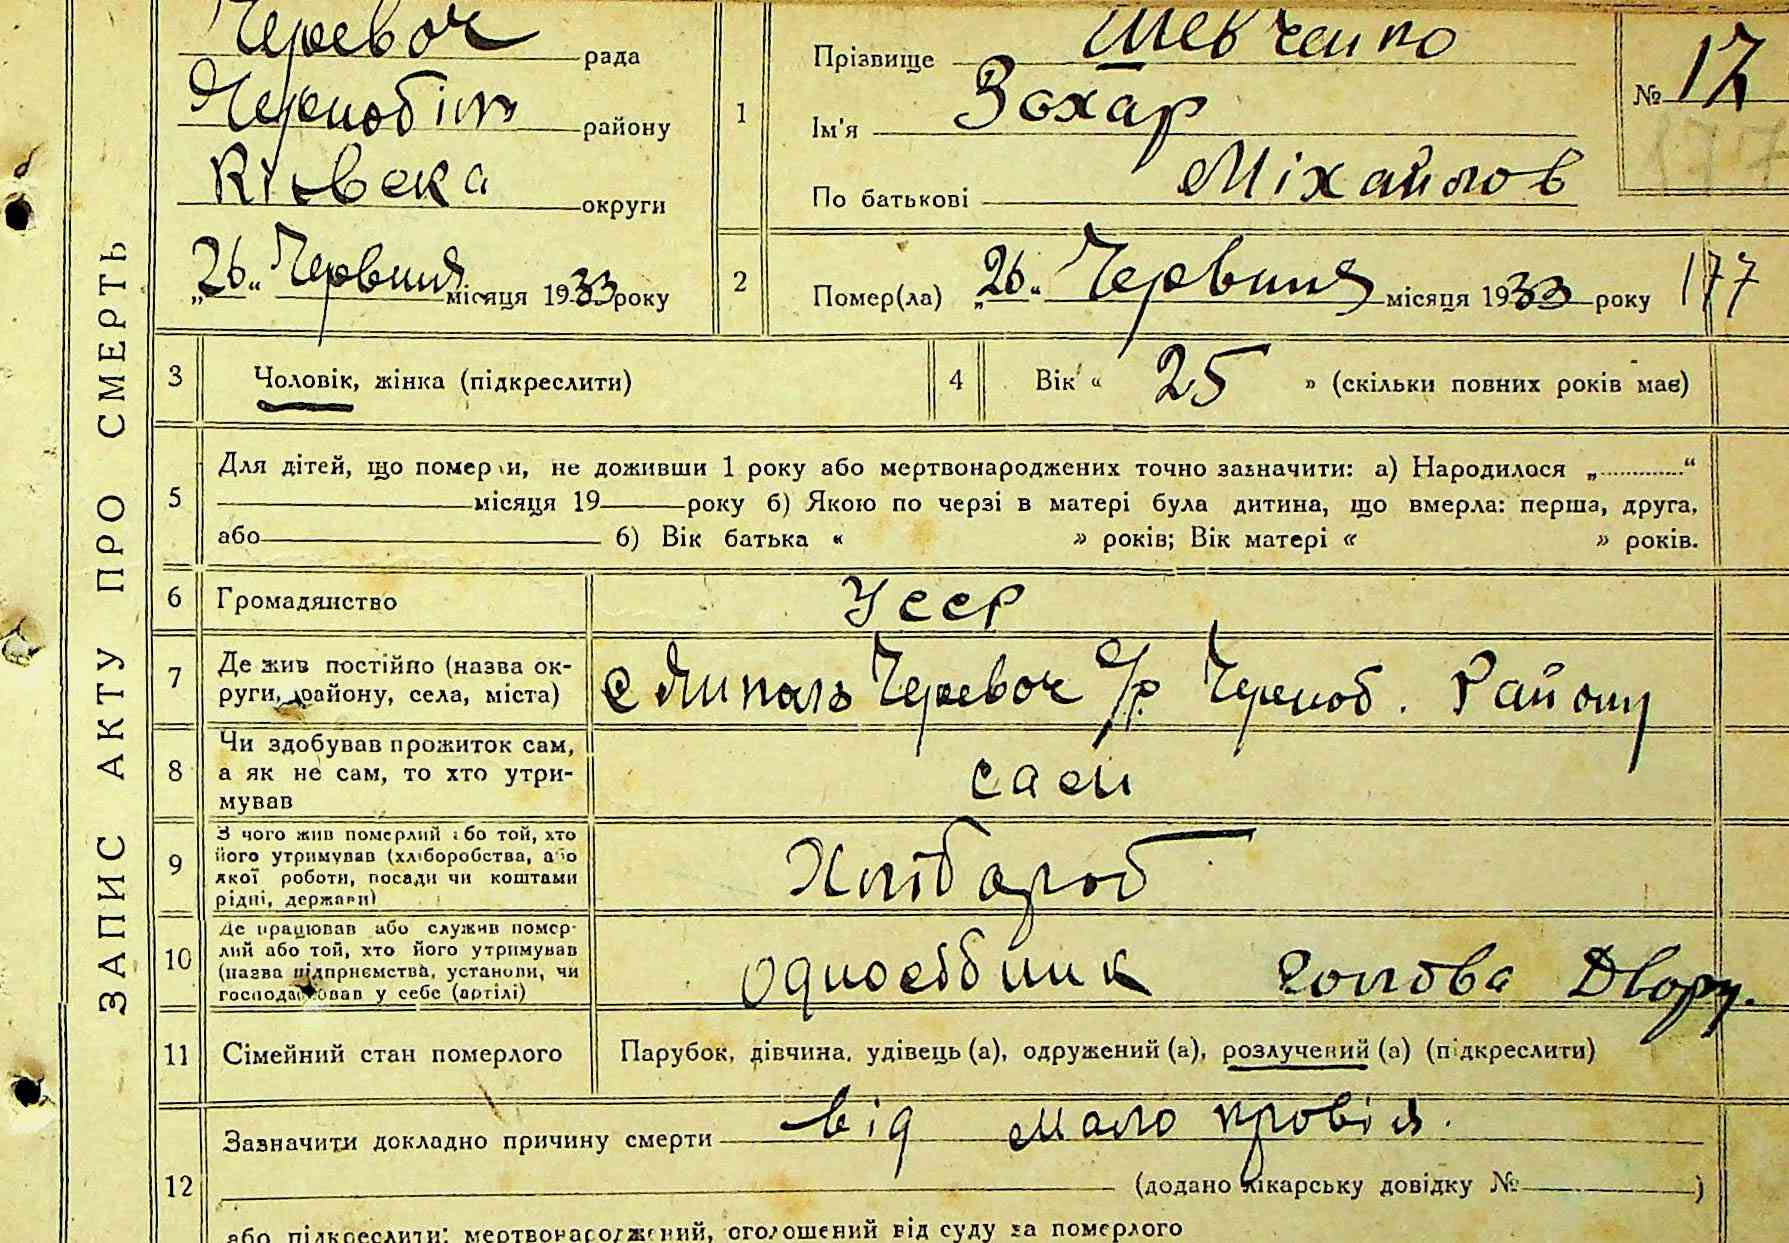 Черевоч рада
Чернобіль району
Київська округи
„26“ Червния місяця 1933 року
1
Прізвище Шевченко
Ім'я Зохар
По батькові Міхайлов
№ 17
2
Помер(ла) „26“ Червния місяця 1933 року
177
ЗАПИС АКТУ ПРО СМЕРТЬ
3 Чоловік, жінка (підкреслити)
4 Вік « 25 » (скільки повних років має)
5
Для дітей, що померли, не доживши 1 року або мертвонароджених точно зазначити: а) Народилося „ “
місяця 19 року б) Якою по черзі в матері була дитина, що вмерла: перша, друга,
або б) Вік батька « » років; Вік матері « » років.
6 Громадянство УССР
7 Де жив постійно (назва ок-
руги, району, села, міста)
с Черевоч с/р Черноб. Району
8 Чи здобував прожиток сам,
а як не сам, то хто утри-
мував
сам
9 З чого жив померлий або той, хто
його утримував (хліборобства, або
якої роботи, посади чи коштами
рідні, держави)
Хлібароб
10 Де працював або служив помер-
лий або той, хто його утримував
(назва підприємства, установи, чи
господарював у себе (артілі)
одноосібник голова Двору.
11 Сімейний стан померлого
Парубок, дівчина, удівець (а), одружений (а), розлучений (а) (підкреслити)
12
Зазначити докладно причину смерти від мало кровія.
(додано лікарську довідку № )
або підкреслити: мертвонароджений, оголошений від суду за померлого